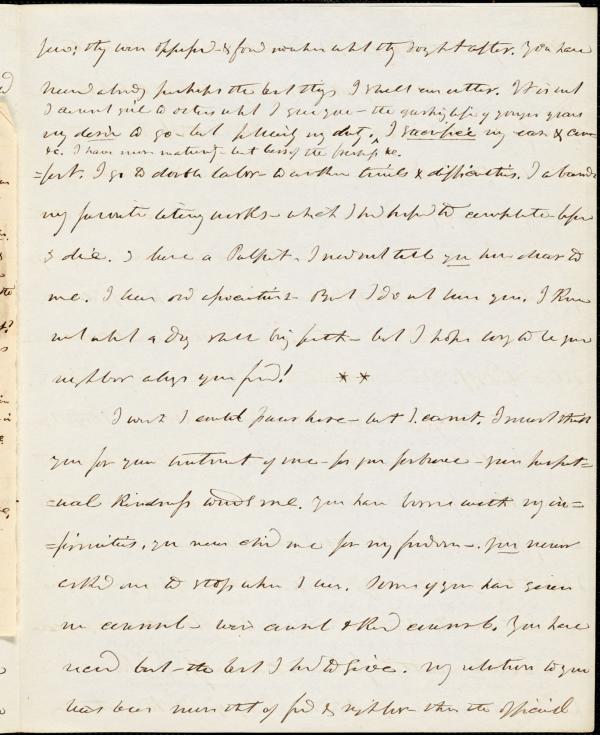 they were opposed - & found what they sought after. You have
heard already perhaps the best things I shall ever utter. It is not
I cannot give to others what I give you - the gushing life of younger years
my desire to go - but plainly my duty. I sacrifice my ease &
&c. I have more maturity - but less of the freshness &c.
=fort. I go to double labor - to further trials & difficulties. I abandon
my favorite literary works - which I had hoped to complete before
I die. I leave a Pulpit. I need not tell you how dear to
me. I leave old associations. But I do not leave you. I know
not what a day shall bring forth - but I hope long to be your
neighbor always your friend! * *
I wish I could pause here - but I cannot. I must thank
you for your treatment of me - for your forbearance - your perpet=
=ual kindness towards me. You have borne with my in=
=firmities. you never chid me for my freedom -. you never
asked me to stop when I was. Some of you have given
me counsel - wise counsel & kind counsel. You have
heard but - the best I had to give. My relation to you
has been more that of friend & neighbor - than the official